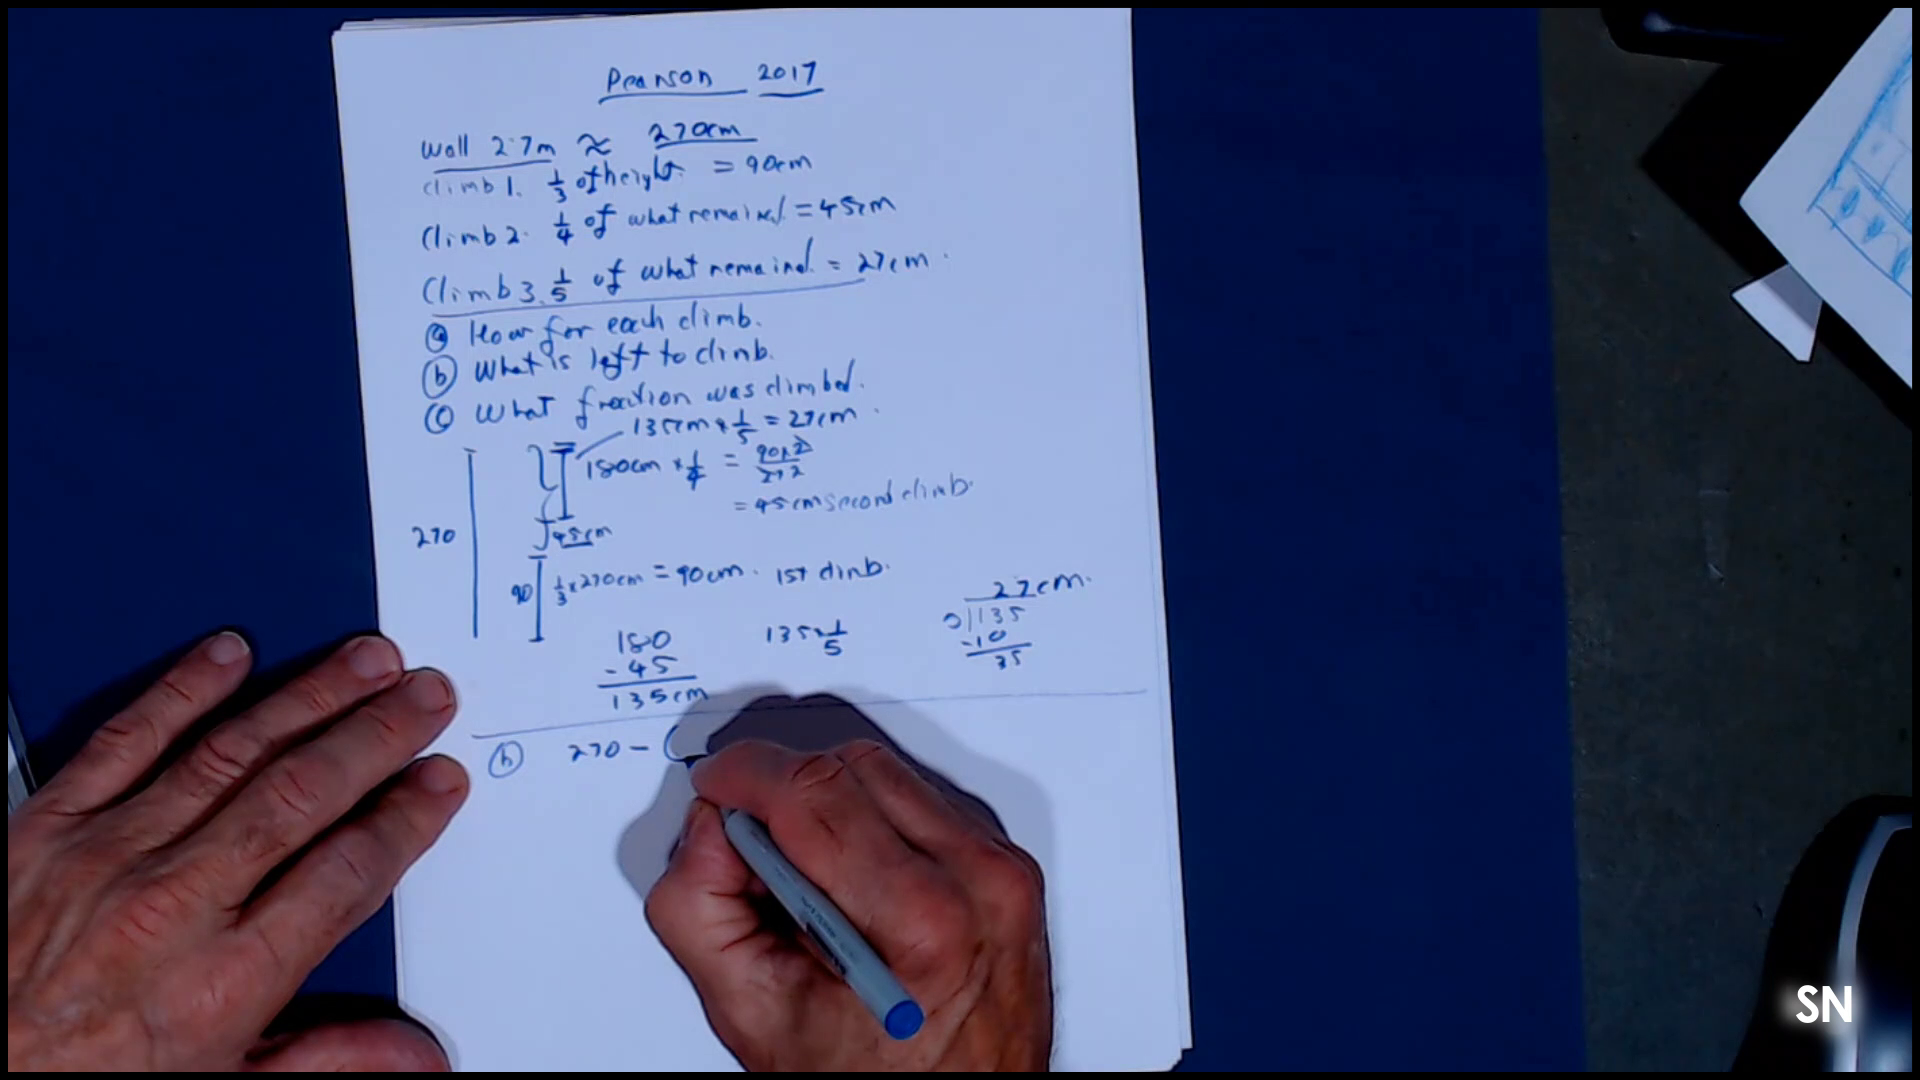 Pearson 2017
Wall 2.7m ≈ 270cm
Climb 1. 1/3 of height = 90cm
Climb 2. 1/4 of what remained = 45cm
Climb 3. 1/5 of what remained. = 27cm.
(a) How far each climb.
(b) What is left to climb.
(c) What fraction was climbed.
135cm × 1/5 = 27cm.
180cm × 1/4 = 90×2
= 45cm second climb.
270
45cm
90 1/3 × 270cm = 90cm. 1st climb.
180
- 45
135cm
135 × 1/5
27cm.
135
-10
35
(b) 270 - (
SN